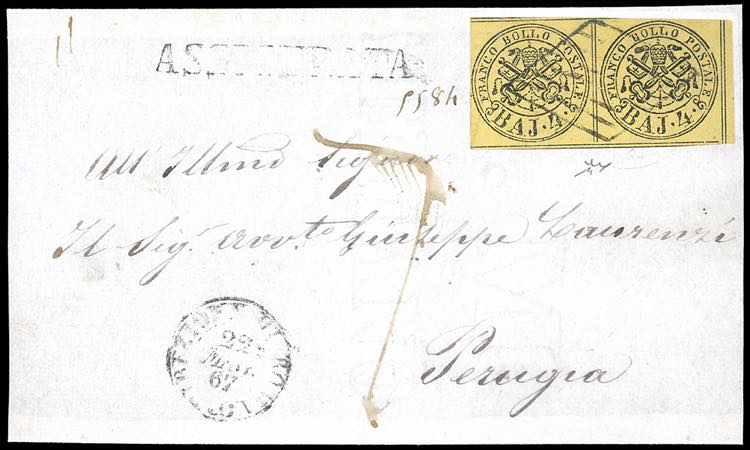 ASSICURATA
FRANCO BOLLO POSTALE
BAJ. 4.
FRANCO BOLLO POSTALE
BAJ. 4.
All' Illmo Signor
Il Sigr. Avvto Giuseppe Laurenzi
Perugia
DIREZIONE DI
67